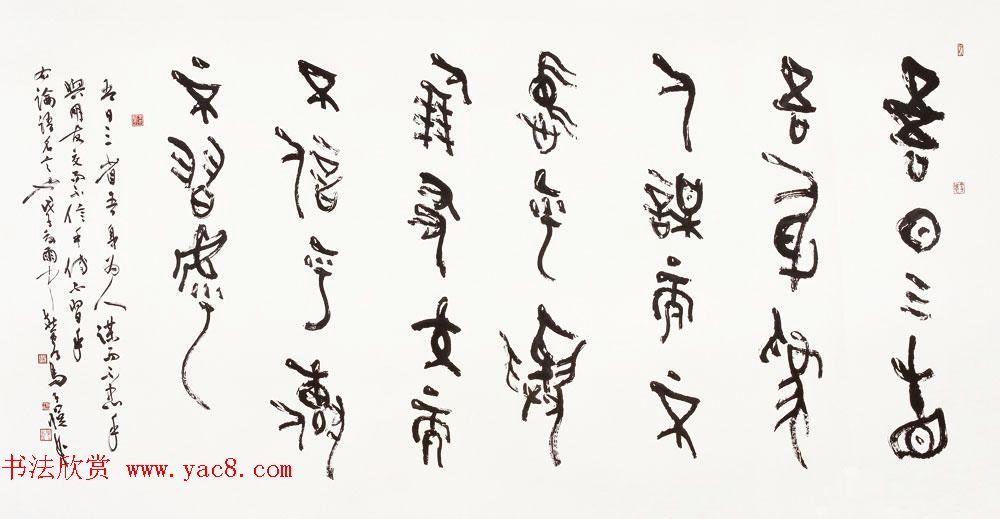 吾日三省
吾身為
人謀而不
忠乎與
朋友交而
不信乎傳
不習乎
吾日三省吾身為人謀而不忠乎
與朋友交而不信乎傳不習乎
右論語名言
书法欣赏 www.yac8.com